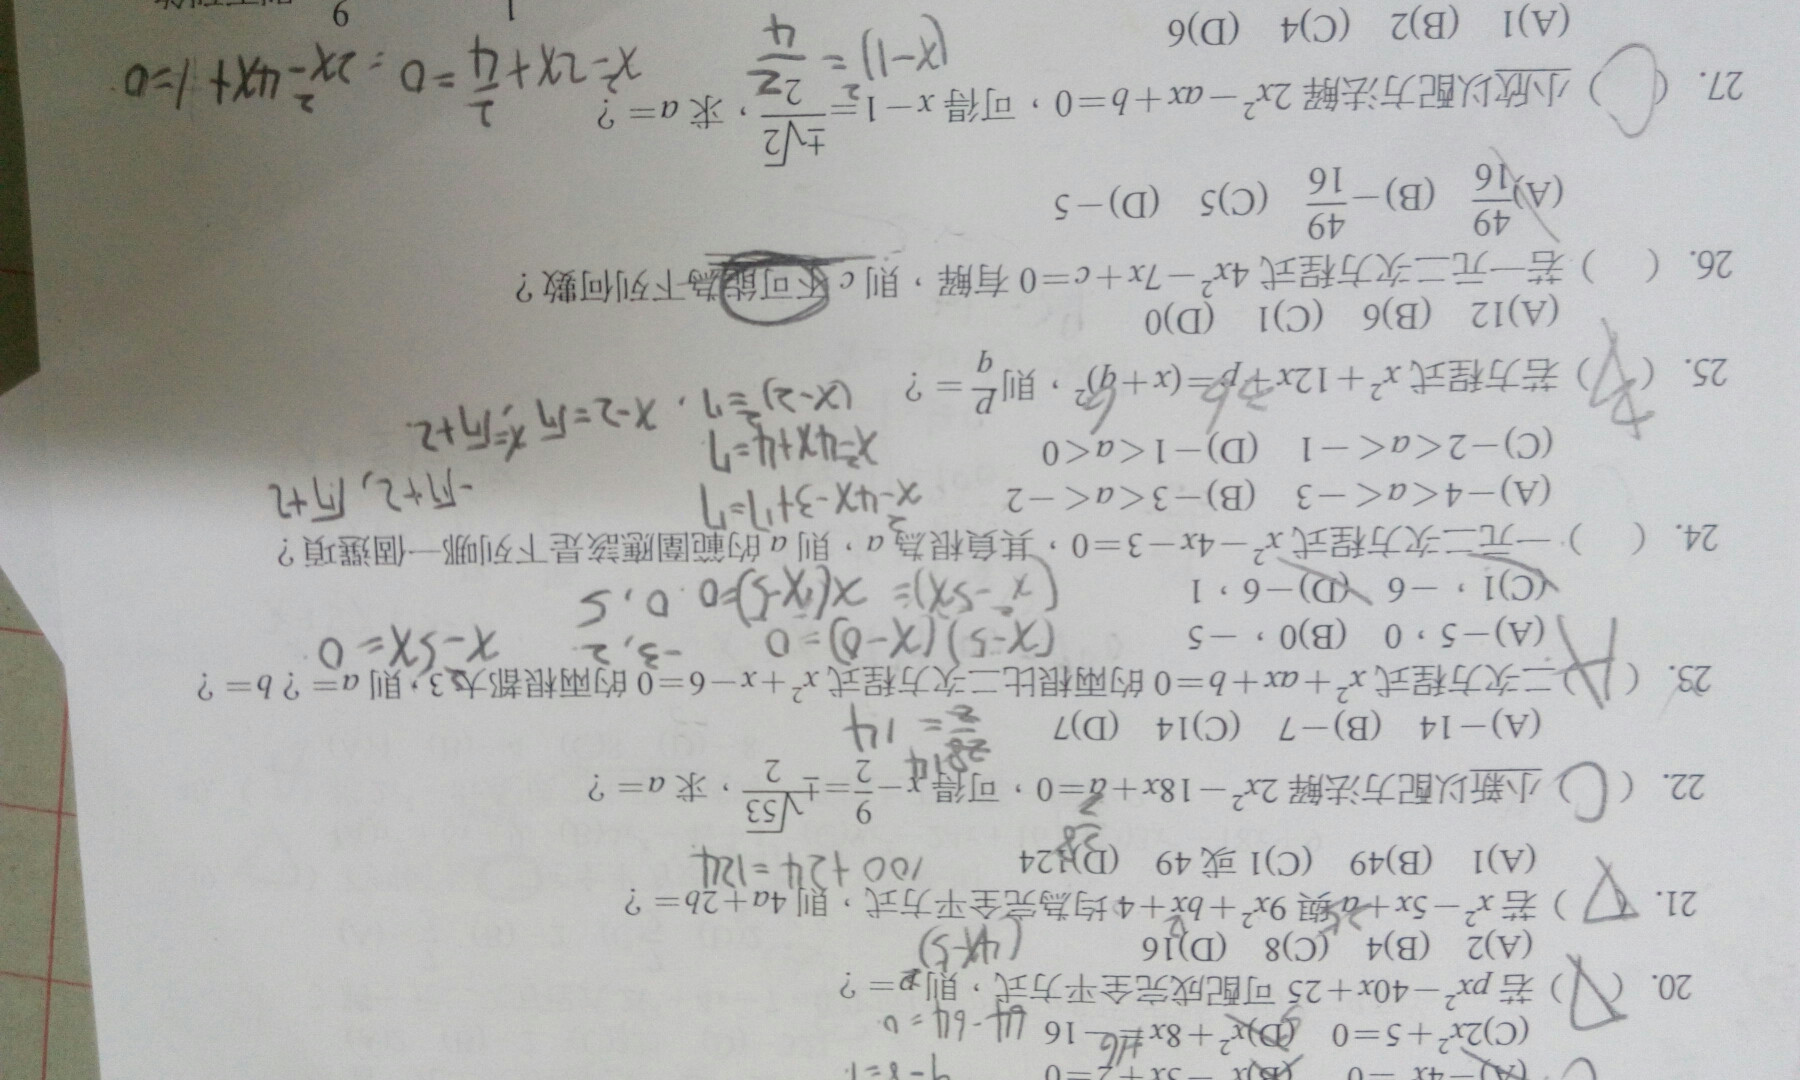 (A)−4x =0 (B)x²−3x+2=0 9-8=1
(C)2x²+5=0 (D)x²+8x=−16 64-64=0
20. ( D ) 若 px²−40x+25 可配成完全平方式，則 p=？
(A)2 (B)4 (C)8 (D)16 (4x-5)²
21. ( D ) 若 x²−5x+a 與 9x²+bx+4 均為完全平方式，則 4a+2b=？
(A)1 (B)49 (C)1 或 49 (D)124 100+24=124
22. ( C ) 小新以配方法解 2x²−18x+a=0，可得 x−9/2=±√53/2，求 a=？
(A)−14 (B)−7 (C)14 (D)7 28/2=14
23. ( A ) 二次方程式 x²+ax+b=0 的兩根比二次方程式 x²+x−6=0 的兩根都大 3，則 a=？b=？
(A)−5，0 (B)0，−5 (x-5)(x-0)=0 -3,2 x²-5x=0
(C)1，−6 (D)−6，1 (x²-5x)=x(x-5)=0 0,5
24. ( ) 一元二次方程式 x²−4x−3=0，其負根為 a，則 a 的範圍應該是下列哪一個選項？
(A)−4<a<−3 (B)−3<a<−2 x²-4x-3+7=7 -√7+2, √7+2
(C)−2<a<−1 (D)−1<a<0 x²-4x+4=7
(x-2)²=7, x-2=√7, x=√7+2
25. ( A ) 若方程式 x²+12x+p=(x+q)²，則 p/q=？
(A)12 (B)6 (C)1 (D)0
26. ( ) 若一元二次方程式 4x²−7x+c=0 有解，則 c 不可能為下列何數？
(A)49/16 (B)−49/16 (C)5 (D)−5
27. ( C ) 小欣以配方法解 2x²−ax+b=0，可得 x−1=±√2/2，求 a=？
(A)1 (B)2 (C)4 (D)6 (x-1)²=2/4 x²-2x+2/4=0=2x²-4x+1=0